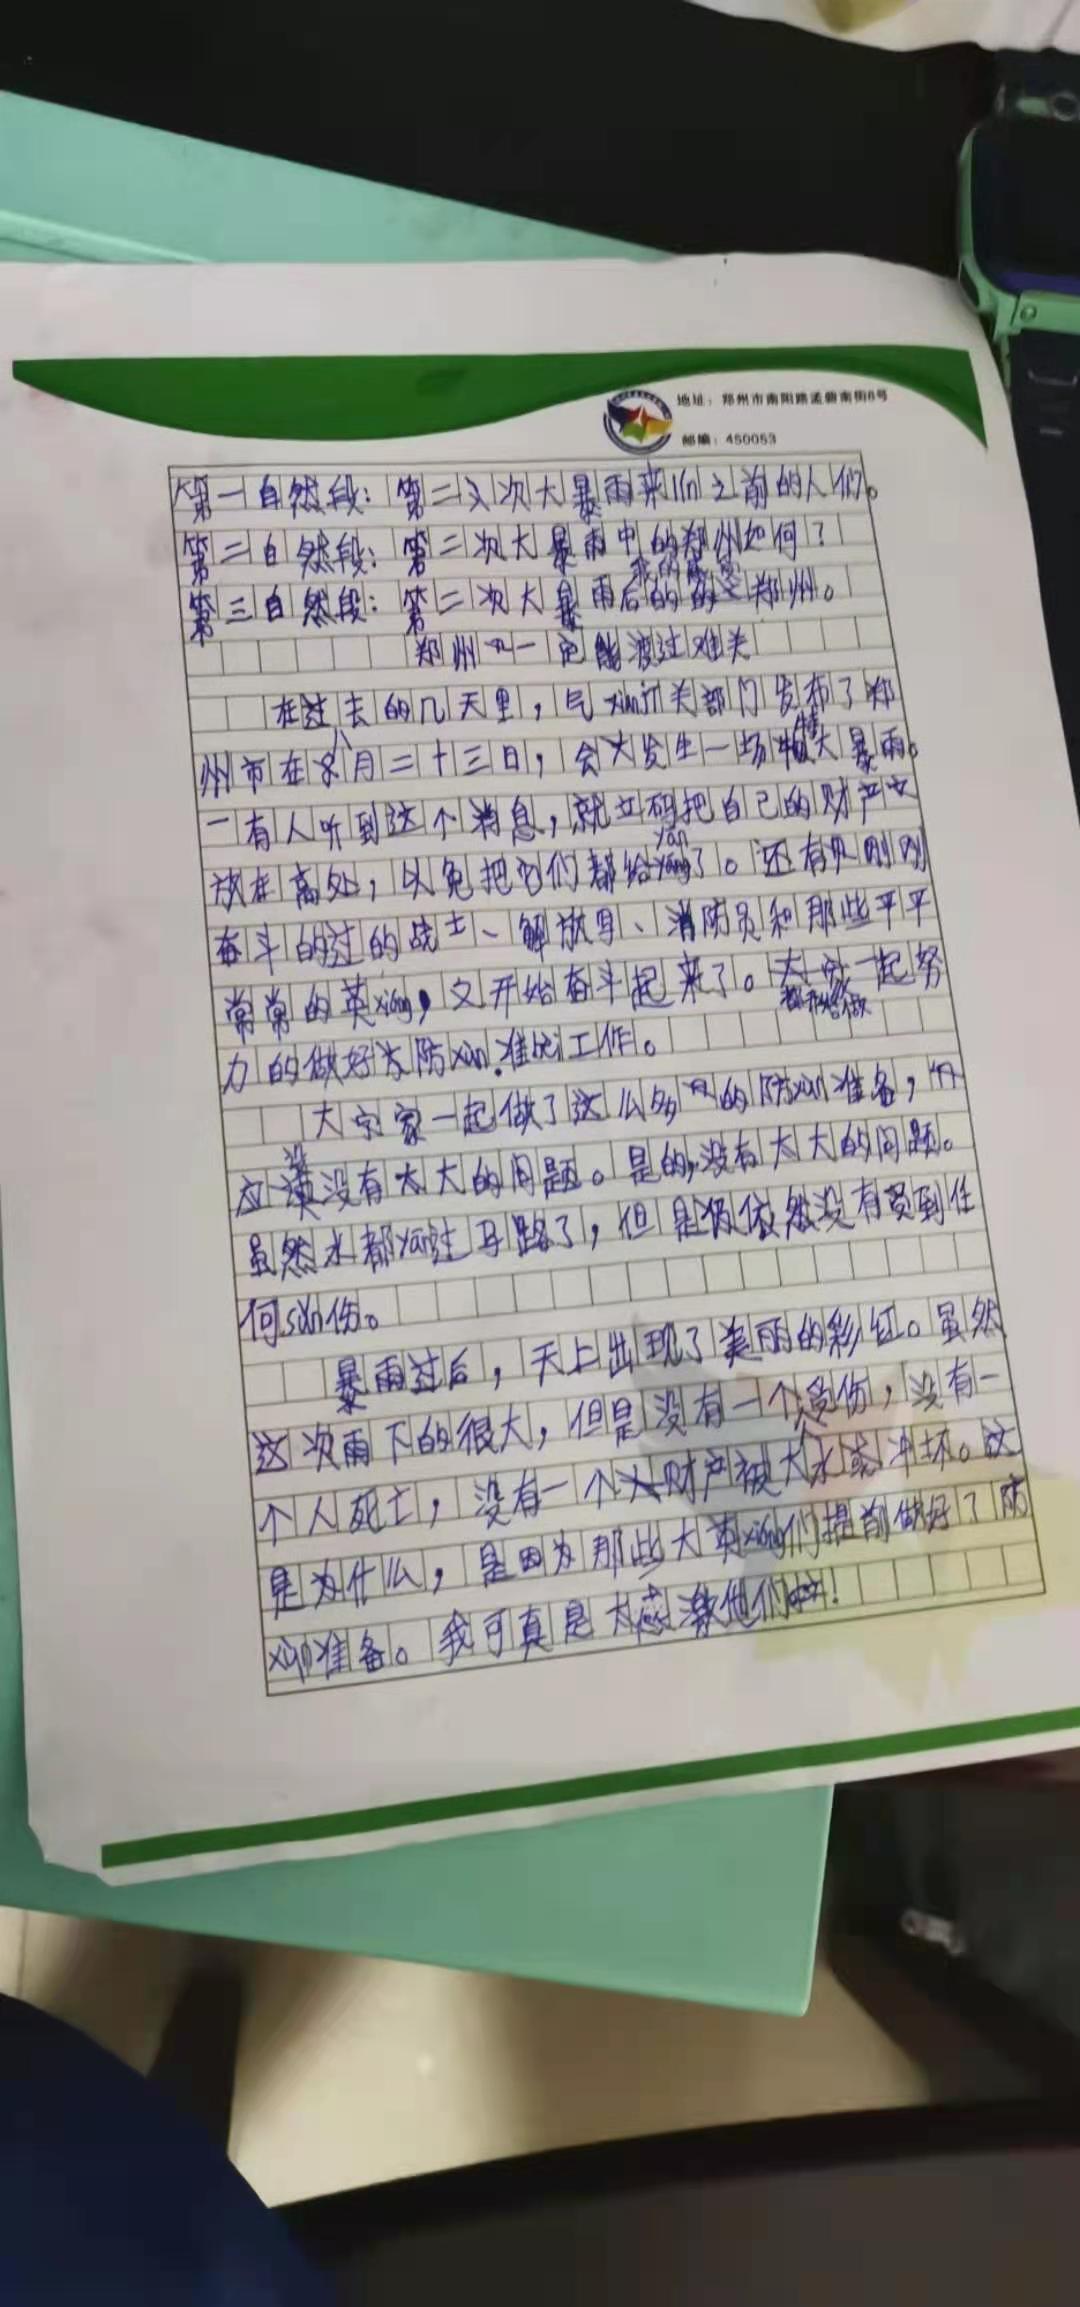 地址：郑州市南阳路孟砦南街8号
邮编：450053
第一自然段：第二次大暴雨来lín之前的人们。
第二自然段：第二次大暴雨中的郑州如何？
第三自然段：第二次大暴雨后的郑州。
郑州一定能渡过难关
在过去的几天里，气xiàng关部门发布了郑
州市在八月二十三日，会大发生一场特大暴雨。
一有人听到这个消息，就立码把自己的财产
放在高处，以免把它们都给yān了。还有刚刚
奋斗的过的战士、解放军、消防员和那些平平
常常的英xióng，又开始奋斗起来了。一起努
力的做好防xùn准工作。
大家一起做了这么多的防xùn准备，
应该没有太大的问题。是的，没有太大的问题。
虽然水都yān过马路了，但是依然没有受到任
何sǔn伤。
暴雨过后，天上出现了美丽的彩红。虽然
这次雨下的很大，但是没有一个人受伤，没有一
个人死亡，没有一个财产被大水冲坏。这
是为什么，是因为那些大英xióng们提前做好了防
xùn准备。我可真是太感激他们！